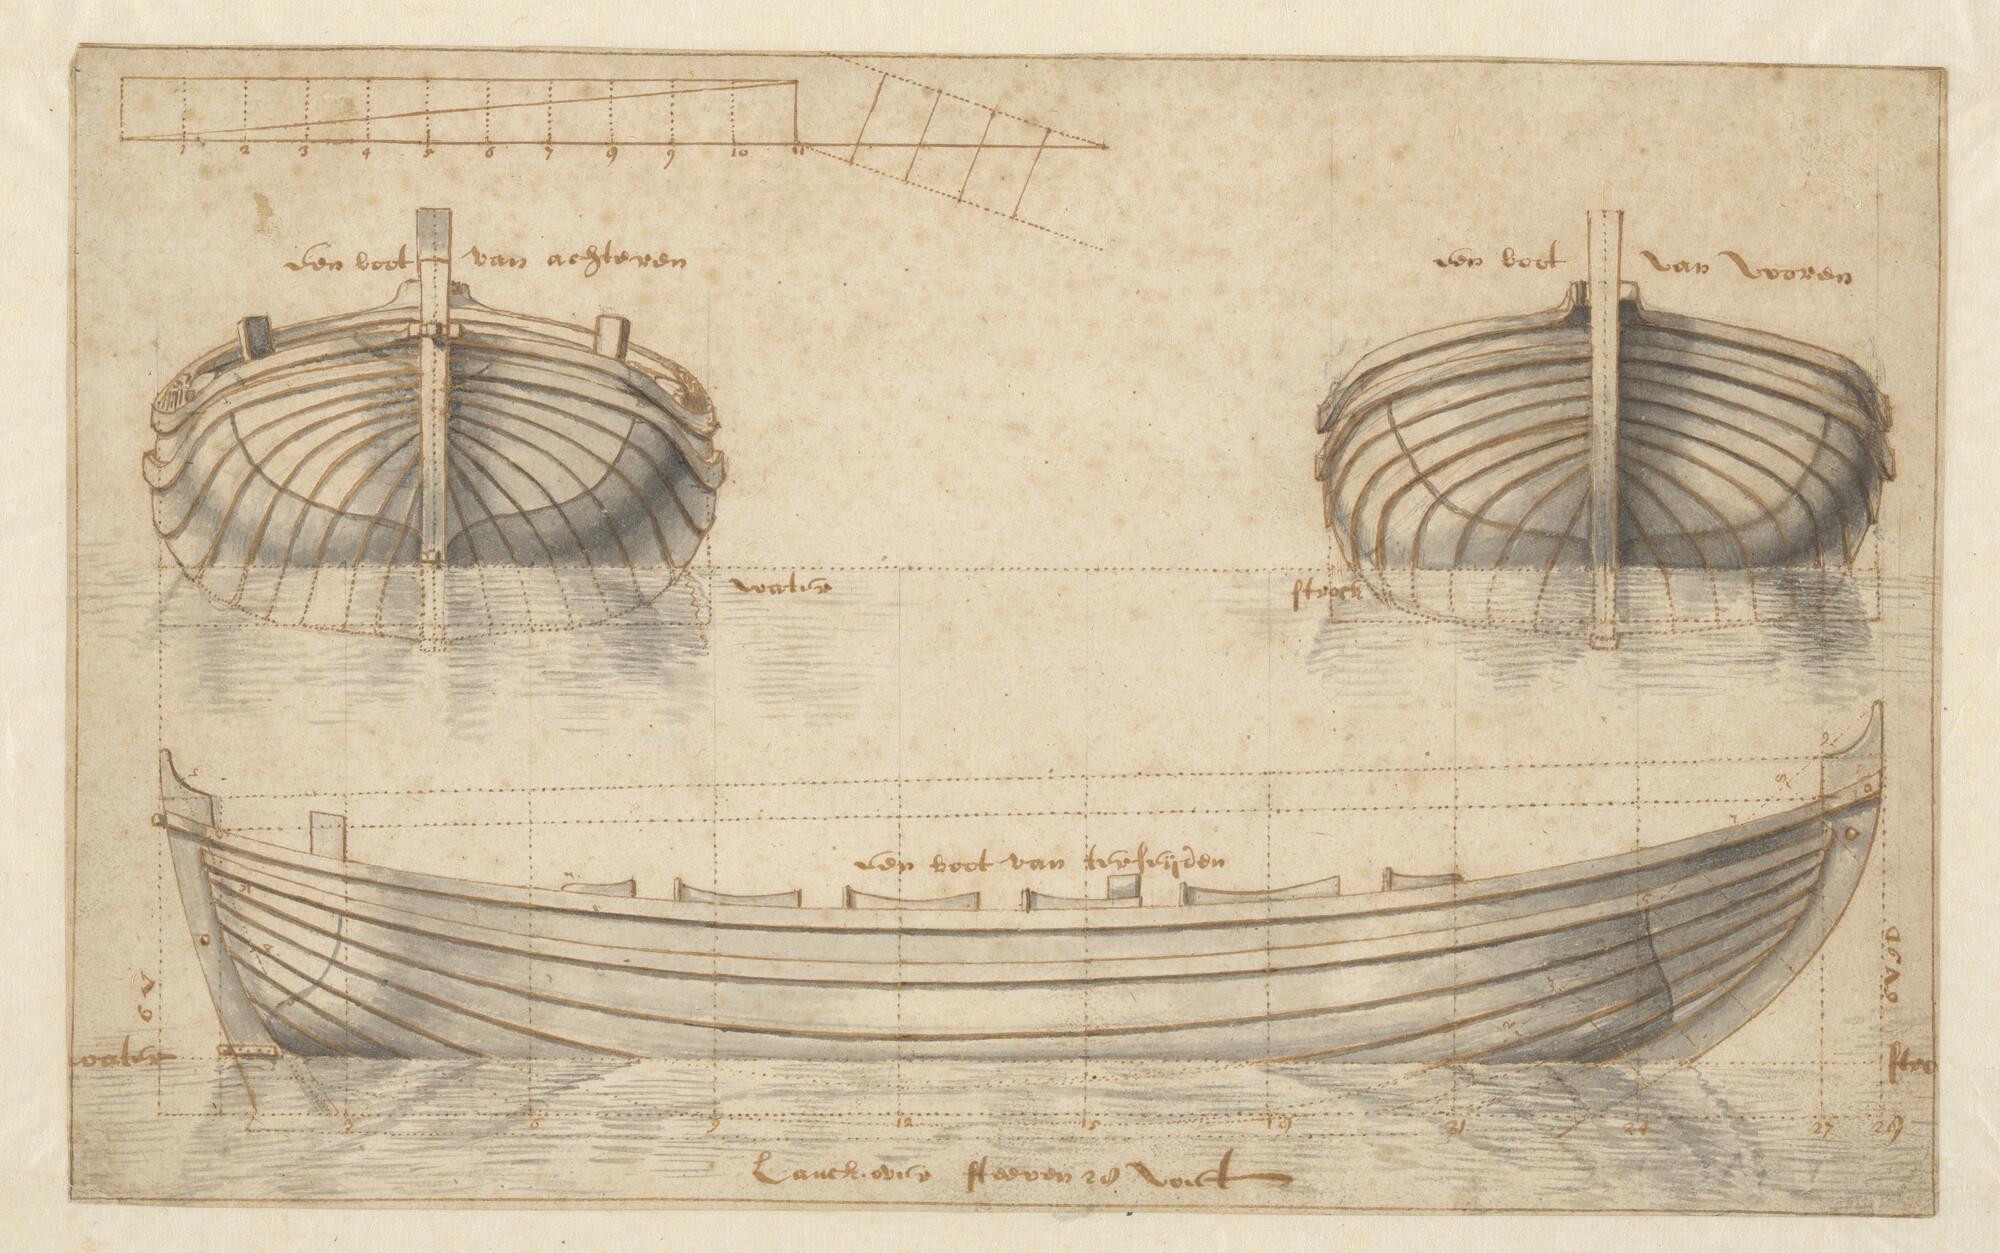 1 2 3 4 5 6 7 8 9 10 11
den boot van achteren
den boot van vooren
water
strock
den boot van terseijden
water
3 6 9 12 15 18 21 24 27 28
Lanck over steeven 28 voet